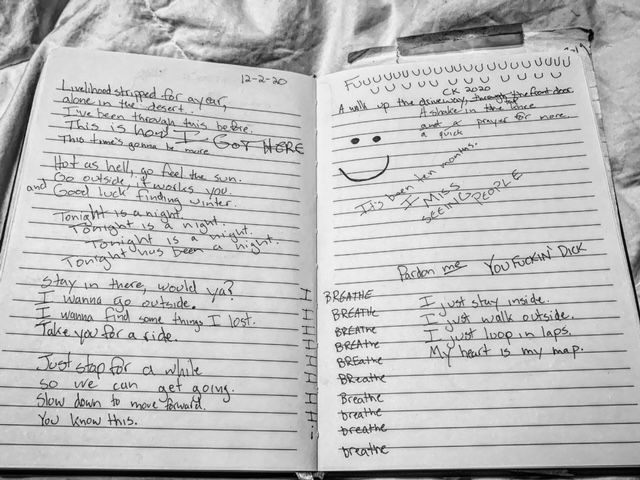 12-2-20
Livelihood stripped for a year,
alone in the desert.
I've been through this before.
This is how I GOT HERE
This time's gonna be more
Hot as hell, go feel the sun.
Go outside, it works you.
and Good luck finding winter.
Tonight is a night.
Tonight is a night.
Tonight is a night.
Tonight has been a night.
Stay in there, would ya?
I wanna go outside.
I wanna find some things I lost.
Take you for a ride.
Just stop for a while
so we can get going.
Slow down to move forward.
You know this.
CK 2020
A walk up the driveway, through the front door.
A shake in the
and a prayer for more.
a quick
It's been ten months.
I MISS
SEEING PEOPLE
Pardon me YOU FUCKIN' DICK
I BREATHE
I BREATHE
I BREATHE
I BREATHE
I BREAthe
I BReathe
I Breathe
I breathe
i breathe
breathe
I just stay inside.
I just walk outside.
I just loop in laps.
My heart is my map.